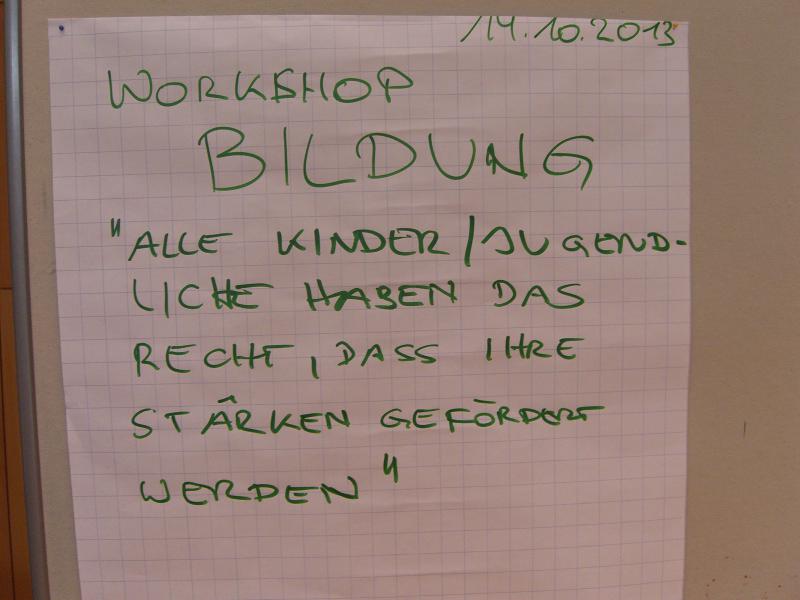 /14.10.2013
WORKSHOP
BILDUNG
"ALLE KINDER/JUGEND-
LICHE HABEN DAS
RECHT, DASS IHRE
STÄRKEN GEFÖRDERT
WERDEN"